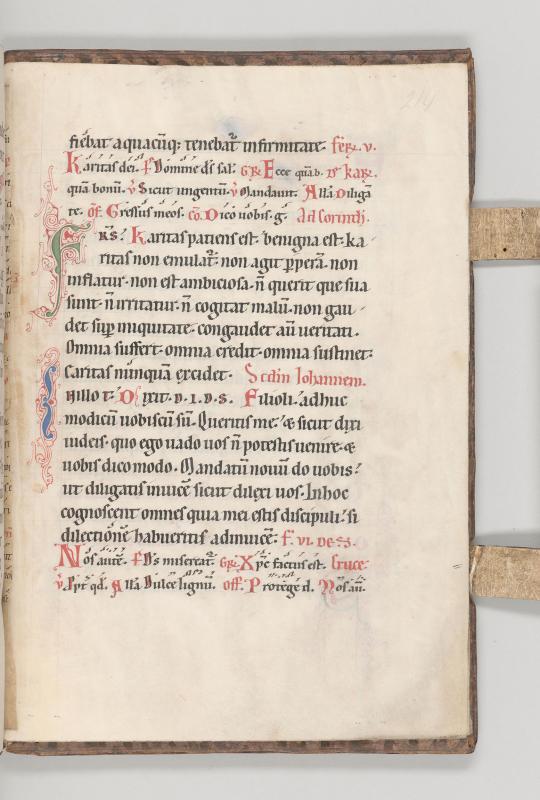 214
fiebat a quacūq; tenebat᷑ infirmitate. fer. v.
Karitas dei. p̄ Domine dš sal. Gr̄ Ecce quā b. v̄ de karit.
quā bonū. v̄ Sicut ungentū. v̄ Mandauit. Alla Diligā
te. of̄. Gressus meos. cō. Dico uobis. g. Ad corinth.
FRS. Karitas patiens est. benigna est. ka
ritas non emulat᷑. non agit ꝑperā. non
inflatur. non est ambiciosa. n̄ querit que sua
sunt. n̄ irritatur. n̄ cogitat malū. non gau
det suꝑ iniquitate. congaudet aū ueritati.
Omnia suffert. omnia credit. omnia sustinet.
Caritas nūnquā excidet. Scdm Iohannem.
IN illo t. Dixit. D. I. D. S. Filioli. adhuc
modicū uobiscū sū. Queritis me. & sicut dixi
iudeis. quo ego uado uos n̄ potestis uenire. &
uobis dico modo. Mandatū nouū do uobis.
ut diligatis inuicē sicut dilexi uos. In hoc
cognoscent omnes quia mei estis discipuli. si
dilectionē habueritis adinuicē. f. vi. De s.
Nos autē. p̄ Ds misereat᷑. Gr̄ Xp̄c factus est. Cruce.
v̄. Ppt̄ qd. Alla Dulce lignū. Off. Protege d. Nos aū.